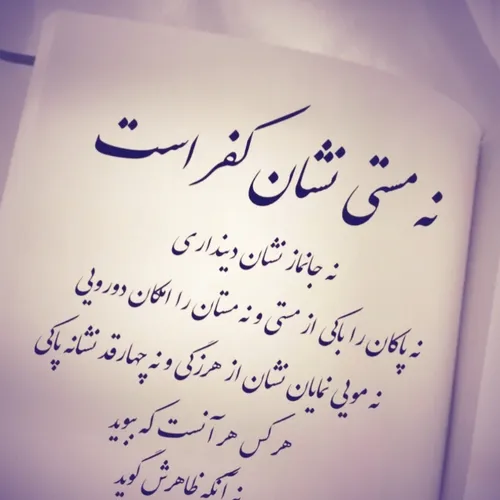 نه مستی نشان کفر است
نه جانماز نشان دینداری
نه پاکان را باکی از مستی و نه مستان را امکان دورویی
نه مویی نمایان نشان از هرزگی و نه چهارقد نشانه پاکی
هر کس هر آنست که ببوید
نه آنکه ظاهرش گوید